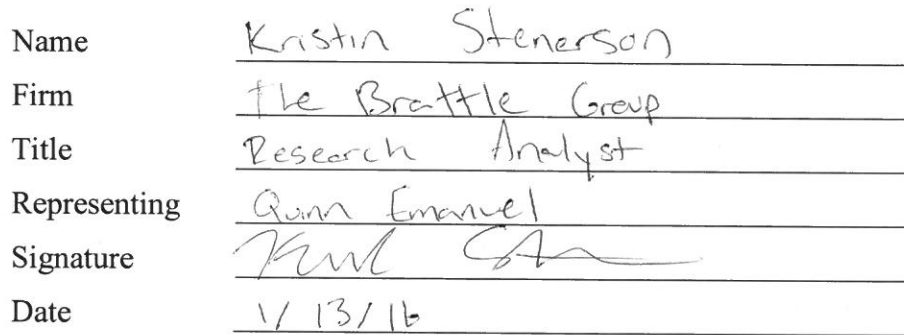 Name Kristin Stenerson
Firm The Brattle Group
Title Research Analyst
Representing Quinn Emanuel
Signature
Date 1/13/16